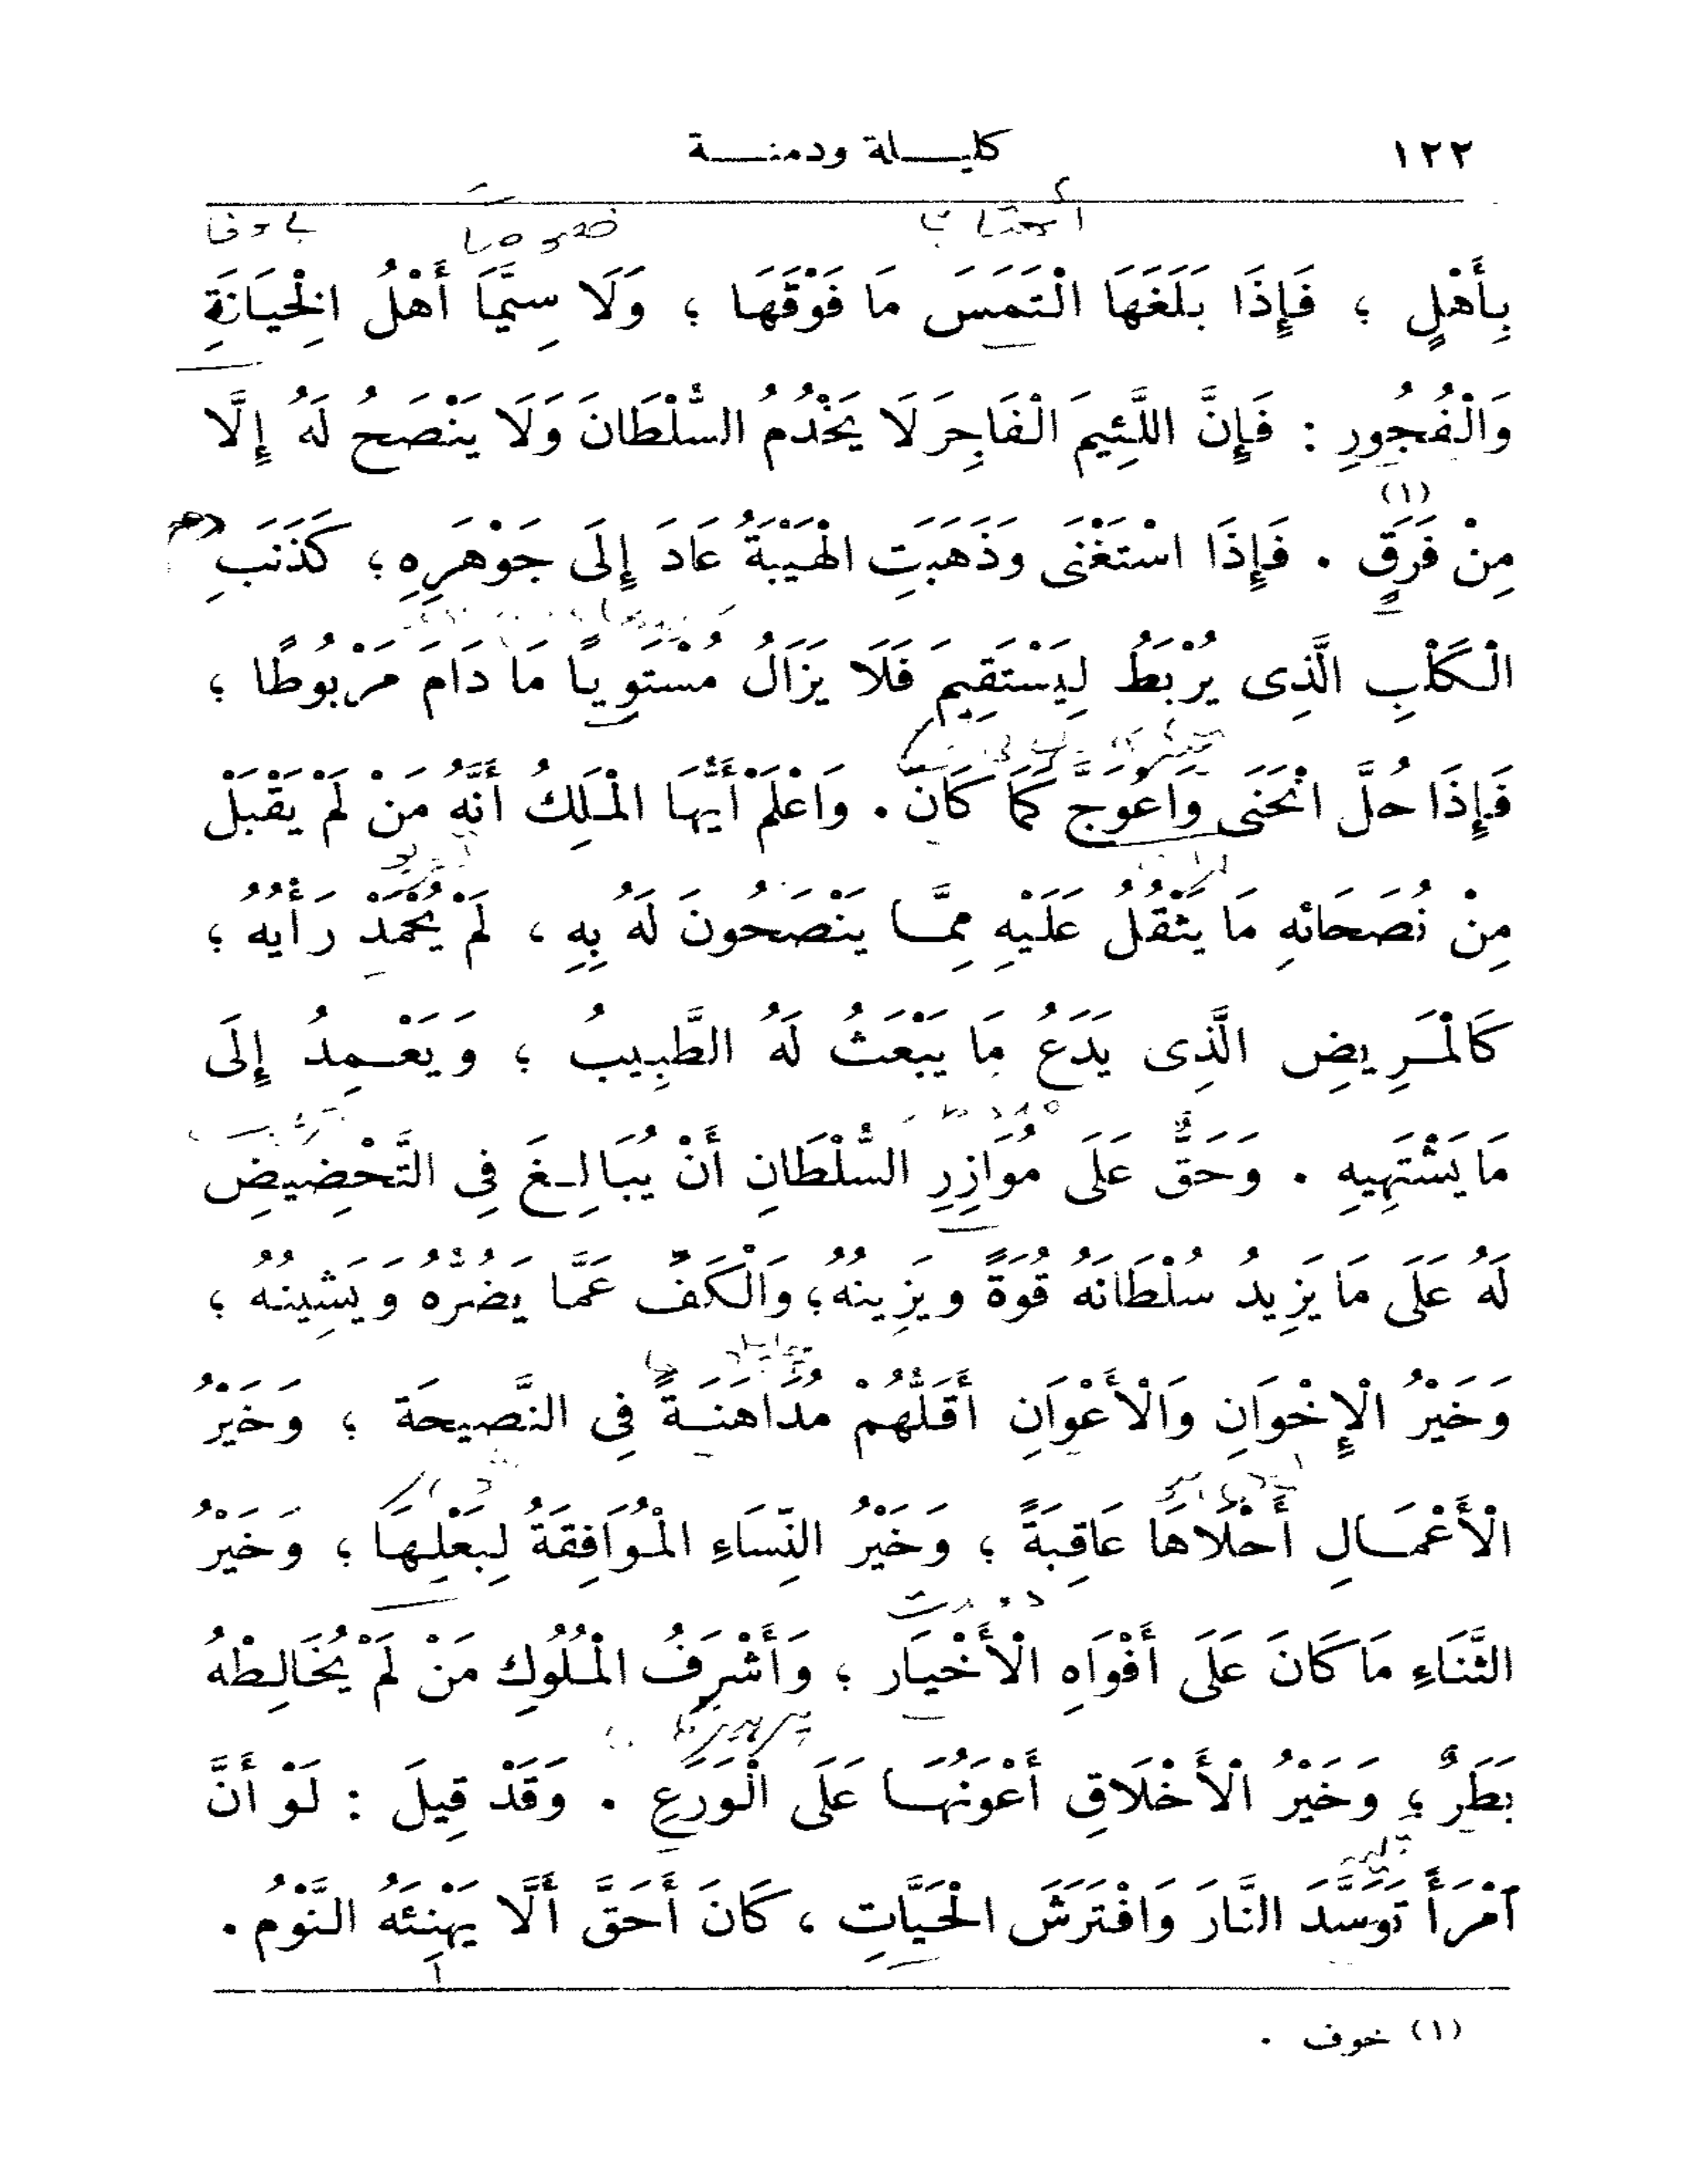 ١٢٢ كليلة ودمنة
بِأَهْلٍ ؛ فَإِذَا بَلَغَهَا الْتَمَسَ مَا فَوْقَهَا ؛ وَلَا سِيَّمَا أَهْلُ الْخِيَانَةِ
وَالْفُجُورِ : فَإِنَّ اللَّئِيمَ الْفَاجِرَ لَا يَخْدُمُ السُّلْطَانَ وَلَا يَنْصَحُ لَهُ إِلَّا
مِنْ فَرَقٍ (١) . فَإِذَا اسْتَغْنَى وَذَهَبَتِ الْهَيْبَةُ عَادَ إِلَى جَوْهَرِهِ ؛ كَذَنَبِ
الْكَلْبِ الَّذِى يُرْبَطُ لِيَسْتَقِيمَ فَلَا يَزَالُ مُسْتَوِياً مَا دَامَ مَرْبُوطًا ؛
فَإِذَا حُلَّ انْحَنَى وَاعْوَجَّ كَمَا كَانَ . وَاعْلَمْ أَيُّهَا الْمَلِكُ أَنَّهُ مَنْ لَمْ يَقْبَلْ
مِنْ نُصَحَائِهِ مَا يَثْقُلُ عَلَيْهِ مِمَّا يَنْصَحُونَ لَهُ بِهِ ، لَمْ يُحْمَدْ رَأْيُهُ ؛
كَالْمَرِيضِ الَّذِى يَدَعُ مَا يَبْعَثُ لَهُ الطَّبِيبُ ؛ وَيَعْمِدُ إِلَى
مَا يَشْتَهِيهِ . وَحَقٌّ عَلَى مُوَازِرِ السُّلْطَانِ أَنْ يُبَالِغَ فِى التَّحْضِيضِ
لَهُ عَلَى مَا يَزِيدُ سُلْطَانَهُ قُوَةً وَيَزِينُهُ ؛ وَالْكَفِّ عَمَّا يَضُرُّهُ وَيَشِينُهُ ؛
وَخَيْرُ الْإِخْوَانِ وَالْأَعْوَانِ أَقَلُّهُمْ مُدَاهَنَةً فِى النَّصِيحَة ؛ وَخَيْرُ
الْأَعْمَالِ أَحْلَاهَا عَاقِبَةً ؛ وَخَيْرُ النِّسَاءِ الْمُوَافِقَةُ لِبَعْلِهَا ؛ وَخَيْرُ
الثَّنَاءِ مَا كَانَ عَلَى أَفْوَاهِ الْأَخْيَارِ ؛ وَأَشْرَفُ الْمُلُوكِ مَنْ لَمْ يُخَالِطْهُ
بَطَرٌ ؛ وَخَيْرُ الْأَخْلَاقِ أَعْوَنُهَا عَلَى الْوَرَعِ . وَقَدْ قِيلَ : لَوْ أَنَّ
آمْرَأً تَوَسَّدَ النَّارَ وَافْتَرَشَ الْحَيَّاتِ ، كَانَ أَحَقَّ أَلَّا يَهْنِئَهُ النَّوْمُ .
(١) خوف .